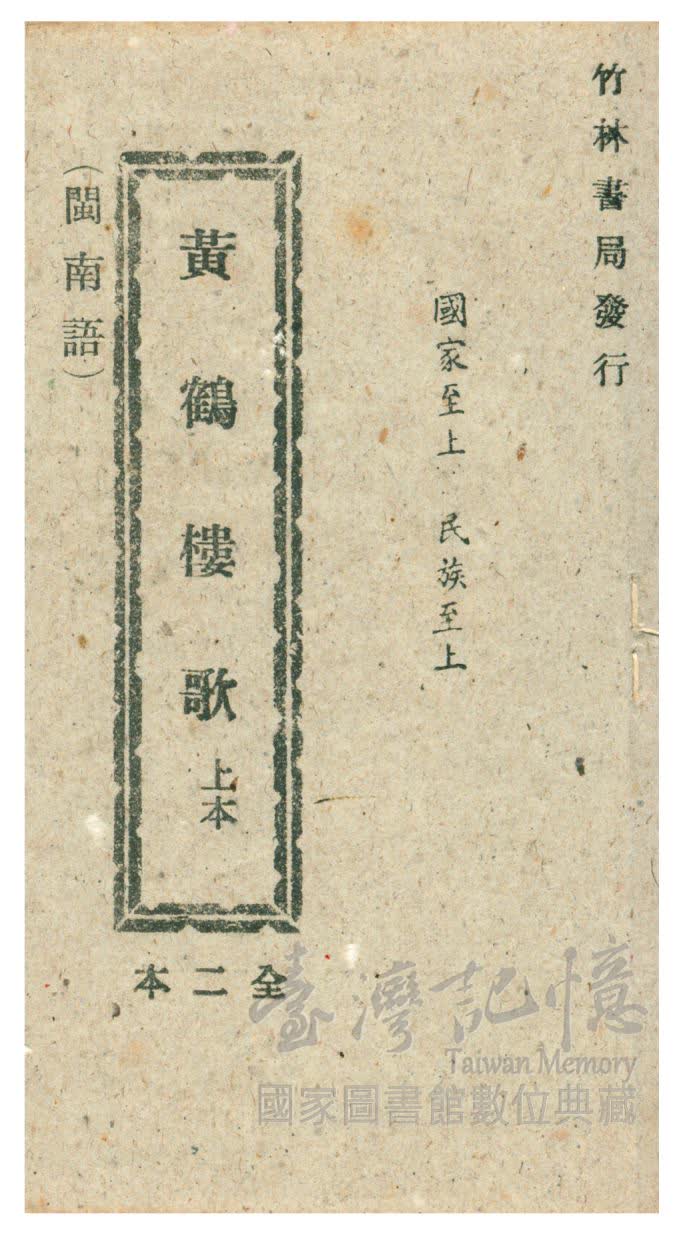 竹林書局發行
國家至上 民族至上
黃鶴樓歌 上本
(閩南語)
全二本
臺灣記憶
Taiwan Memory
國家圖書館數位典藏